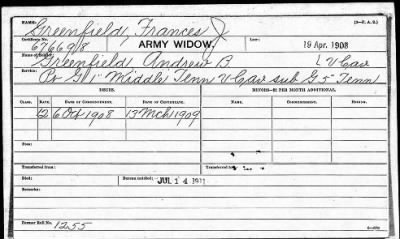 NAME: Greenfield, Frances J.
Certificate No. 676698 ARMY WIDOW. Law: 19 Apr. 1908
Name of Greenfield, Andrew B
Service: Pv G 1" Middle Tenn V Cav sub G 5" Tenn
V Cav
ISSUES. MINORS—$2 PER MONTH ADDITIONAL.
CLASS. RATE. DATE OF COMMENCEMENT. DATE OF CERTIFICATE. NAME. COMMENCEMENT. ENDING.
12 6 Oct 1908 13 Mch 1909
From:
Transferred from: Transferred to:
Died: Bureau notified: JUL 14
Remarks:
Former Roll No. 1255